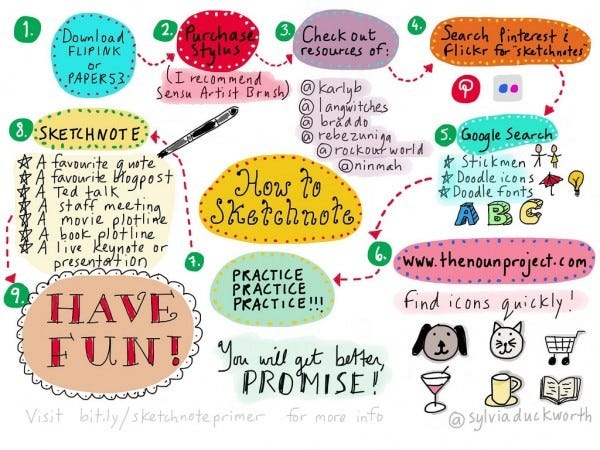 1.
Download
FLIPINK
or
PAPER53
2.
Purchase
Stylus
(I recommend
Sensu Artist Brush)
3.
Check out
resources of:
@karlyb
@langwitches
@braddo
@rebezuniga
@rockourworld
@ninmah
4.
Search Pinterest &
Flickr for "sketchnotes"
5.
Google Search
Stickmen
Doodle icons
Doodle fonts
A B C
6.
www.thenounproject.com
Find icons quickly!
7.
PRACTICE
PRACTICE
PRACTICE!!!
You will get better,
PROMISE!
8.
SKETCHNOTE
A favourite quote
A favourite blogpost
A Ted talk
A staff meeting
A movie plotline
A book plotline
A live keynote or
presentation
9.
HAVE
FUN!
How to
Sketchnote
Visit bit.ly/sketchnoteprimer for more info
@sylviaduckworth